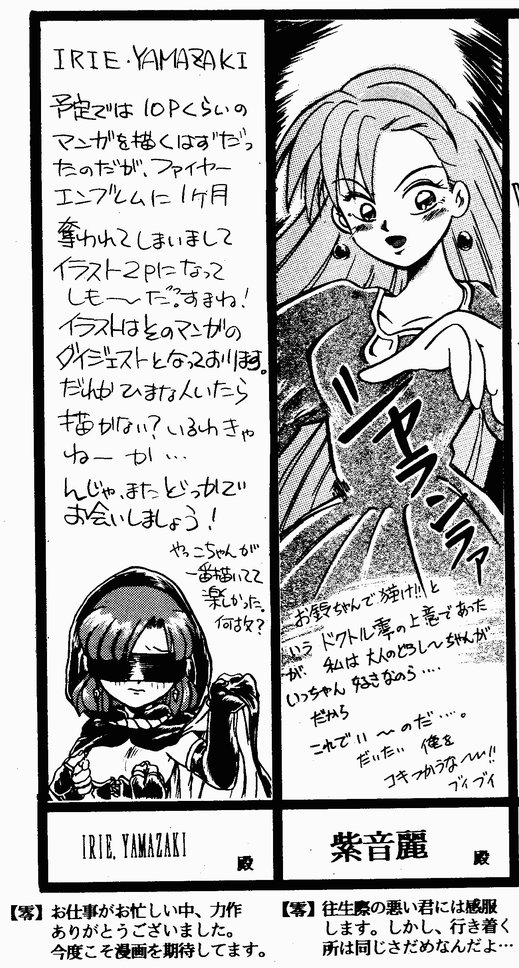 IRIE・YAMAZAKI
予定では10Pくらいの
マンガを描くはずだっ
たのだが、ファイヤー
エンブレムに1ヶ月
奪われてしまいまして
イラスト2Pになって
しも〜だ?すまね!
イラストはそのマンガの
ダイジェストとなっております。
だれかひまな人いたら
描かない?いるわきゃ
ねーか…
んじゃ、またどっかで
お会いしましょう!
やっこちゃんが
一番描いてて
楽しかった。
何故?
IRIE.YAMAZAKI
殿
【零】お仕事がお忙しい中、力作
ありがとうございました。
今度こそ漫画を期待してます。
ジャランラァ
お鈴ちゃんで強け!!と
いう ドクトル零の上意であった
が、私は大人のどろし〜ちゃんが
いっちゃん 好きなのら‥‥
だから
これでい〜のだ…。
だいたい 俺を
コキつかうな〜!!
ブイブイ
紫音麗
殿
【零】往生際の悪い君には感服
します。しかし、行き着く
所は同じさだめなんだよ…